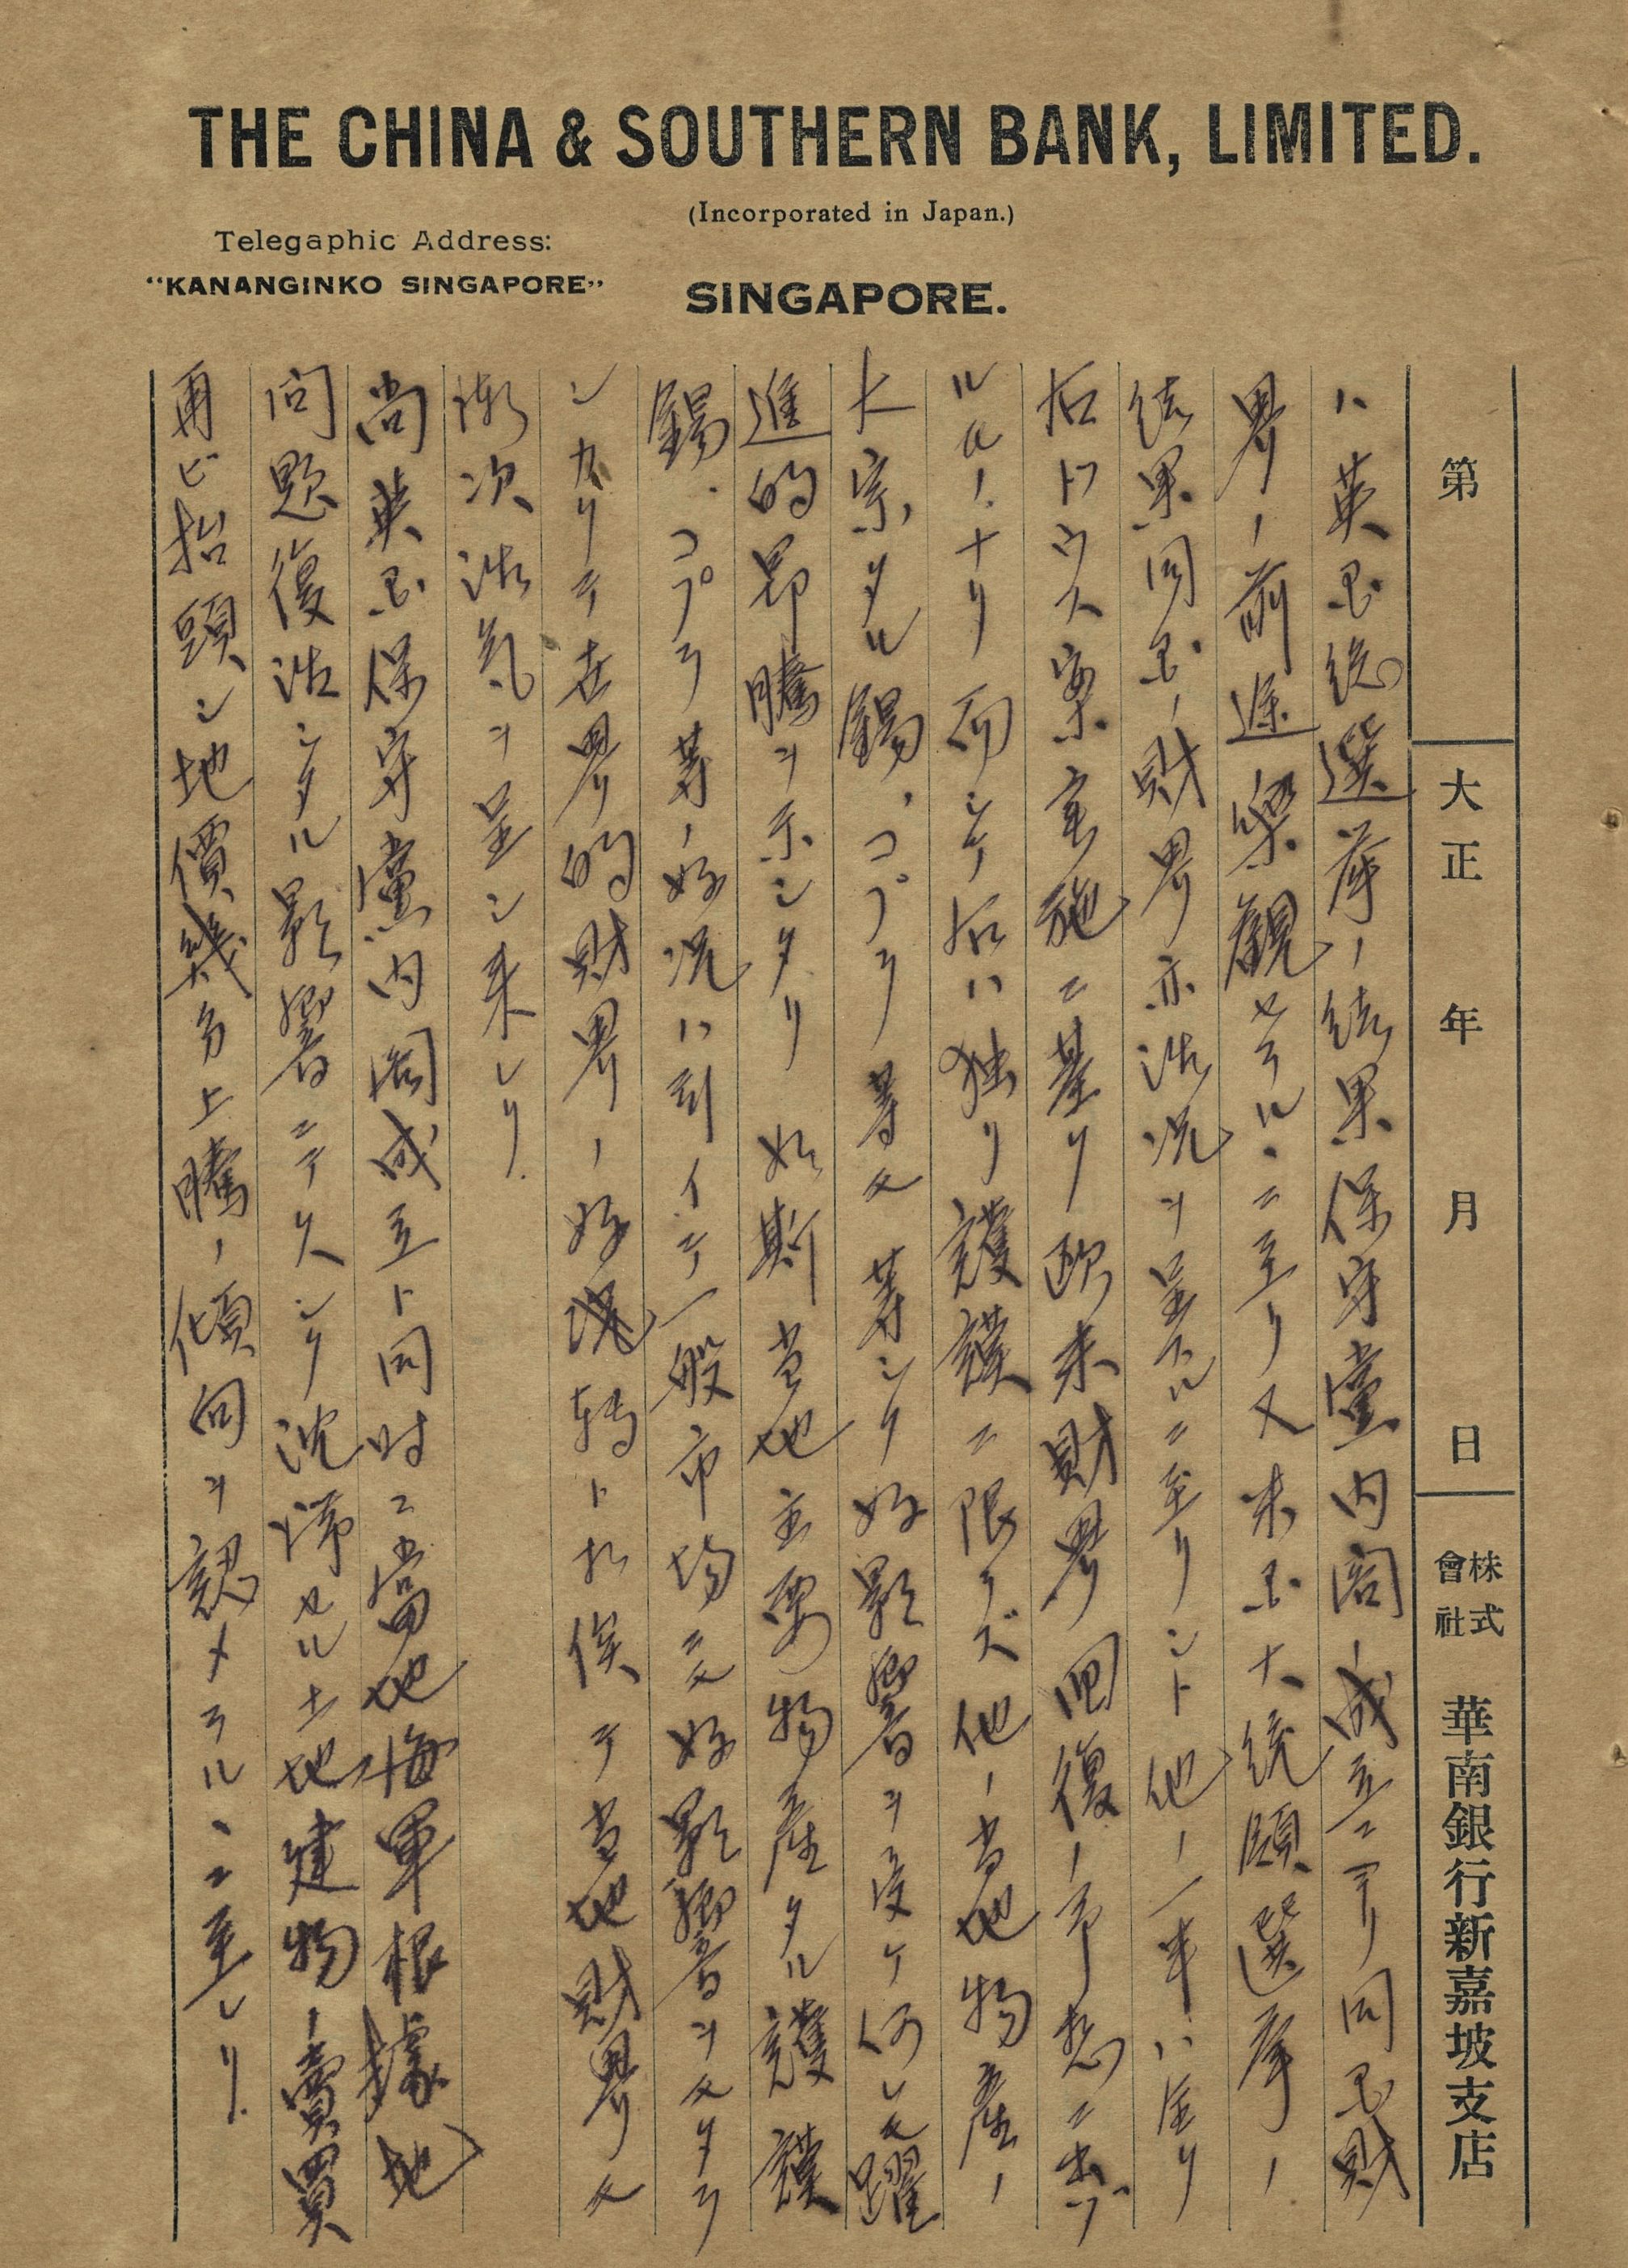 THE CHINA & SOUTHERN BANK, LIMITED.
(Incorporated in Japan.)
Telegaphic Address:
"KANANGINKO SINGAPORE"
SINGAPORE.
第 大正 年 月 日 株式會社 華南銀行新嘉坡支店
ハ英国総選挙ノ結果保守党内閣ノ成立ニヨリ同国財
界ノ前途楽観セラルヽニ至リ又米国大統領選挙ノ
結果同国ノ財界亦活況ヲ呈スルニ至リシト他ノ一半ハ全リ
右ドウス案実施ニ基リ欧米財界回復ノ予想ニ出デ
ルモノナリ而シテ右ハ独リ護謨ニ限ラズ他ノ当地物産ノ
大宗タル錫、コプラ等モ等シク好影響ヲ受ケ何レモ躍
進的昂騰ヲ示シタリ如斯当地主要物産タル護謨
錫、コプラ等ノ好況ハ引イテ一般市場ニモ好影響ヲモタラ
シカクテ世界的財界ノ好況転ト相俟テ当地財界モ
漸次活気ヲ呈シ来レリ.
尚英国保守党内閣成立ト同時ニ当地海軍根據地
問題復活シタル影響ニテ久シク沈滞セル土地建物ノ賣買
再ビ抬頭シ地價幾分上騰ノ傾向ヲ認メラルヽニ至レリ.